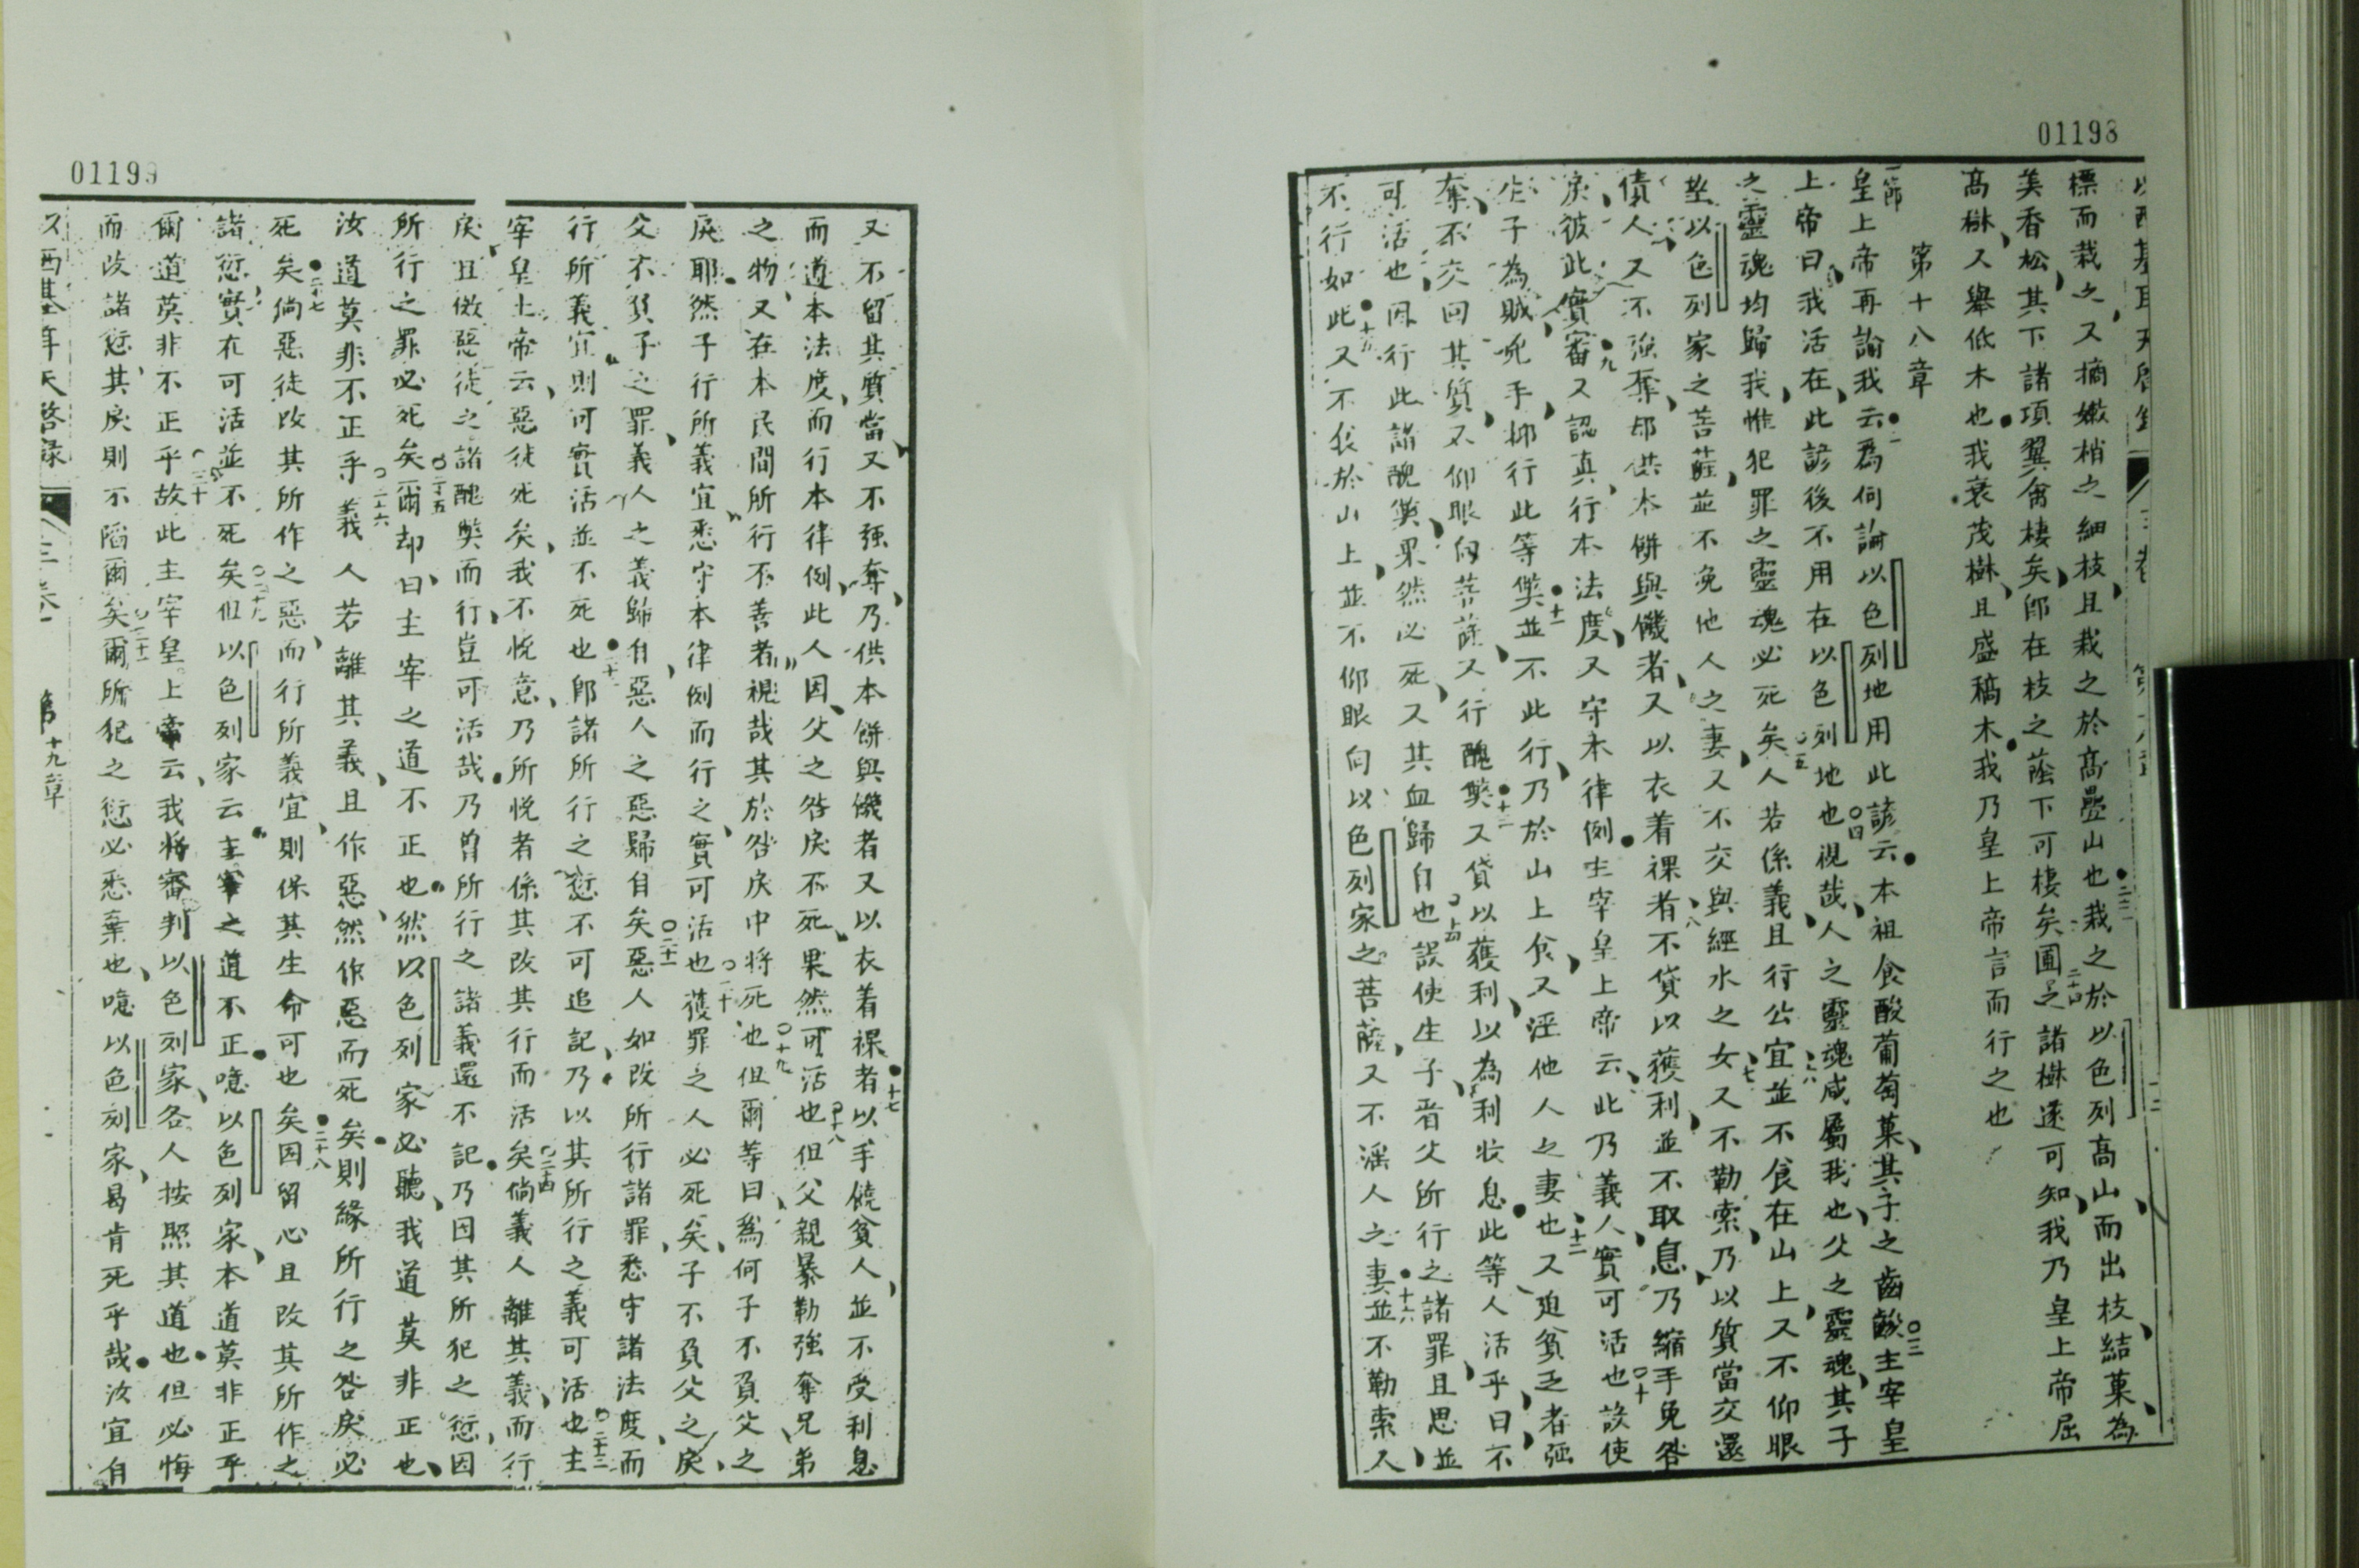 01198
標而栽之又摘嫩梢之細枝且栽之於高疊山也二三栽之於以色列高山而出枝結菓為
美香松其下諸項翼禽棲矣卽在枝之蔭下可棲矣二十四圃之諸樹遂可知我乃皇上帝屈
高樹又舉低木也我衰茂樹且盛稿木我乃皇上帝言而行之也
第十八章
一節皇上帝再諭我云二為何論以色列地用此諺云本祖食酸葡萄菓其子之齒齼三主宰皇
上帝曰我活在此諺後不用在以色列地也四視哉人之靈魂咸屬我也父之靈魂其子
之靈魂均歸我惟犯罪之靈魂必死矣五人若係義且行公宜六並不食在山上又不仰眼
望以色列家之菩薩並不浼他人之妻又不交與經水之女七又不勒索乃以質當交還
債人又不強奪却供本餅與饑者又以衣着裸者八不貸以獲利並不取息乃縮手免咎
戾彼此實審九又認真行本法度又守本律例主宰皇上帝云此乃義人實可活也十設使
生子為賊兇手抑行此等獘十一並不此行乃於山上食又淫他人之妻也十二又廹貧乏者强
奪不交回其質又仰眼向菩薩又行醜獘十三又貸以獲利以為利收息此等人活乎曰不
可活也因行此諸醜獘果然必死又其血歸自也十四設使生子看父所行之諸罪且思並
不行如此十五又不食於山上並不仰眼向以色列家之菩薩又不滛人之妻十六並不勒索人
01199
又不留其質當又不强奪乃供本餅與饑者又以衣着裸者十七以手饒貧人並不受利息
而遵本法度而行本律例此人因父之咎戾不死果然可活也十八但父親暴勒強奪兄弟
之物又在本民間所行不善者視哉其於咎戾中將死也十九但爾等曰為何子不負父之
戾耶然子行所義宜悉守本律例而行之實可活也二十獲罪之人必死矣子不負父之戾
父不負子之罪義人之義歸自惡人之惡歸自矣二十一惡人如改所行諸罪悉守諸法度而
行所義宜則可實活並不死也卽諸所行之愆不可追記乃以其所行之義可活也二十三主
宰皇上帝云惡徒死矣我不悅意乃所悅者係其改其行而活矣二十四倘義人離其義而行
戾且傚惡徒之諸醜獘而行豈可活哉乃曾所行之諸義還不記乃因其所犯之愆因
所行之罪必死矣二十五爾却曰主宰之道不正也然以色列家必聽我道莫非正也
汝道莫非不正乎二十六義人若離其義且作惡然作惡而死矣則緣所行之咎戾必
死矣二十七倘惡徒改其所作之惡而行所義宜則保其生命可也矣二十八因留心且改其所作之
諸愆實在可活並不死矣二十九但以色列家云主宰之道不正噫以色列家本道莫非正乎
爾道莫非不正乎三十故此主宰皇上帝云我將審判以色列家各人按照其道也但必悔
而改諸愆其戾則不陷爾矣三十一爾所犯之愆必悉棄也噫以色列家曷肯死乎哉汝宜自
第十九章